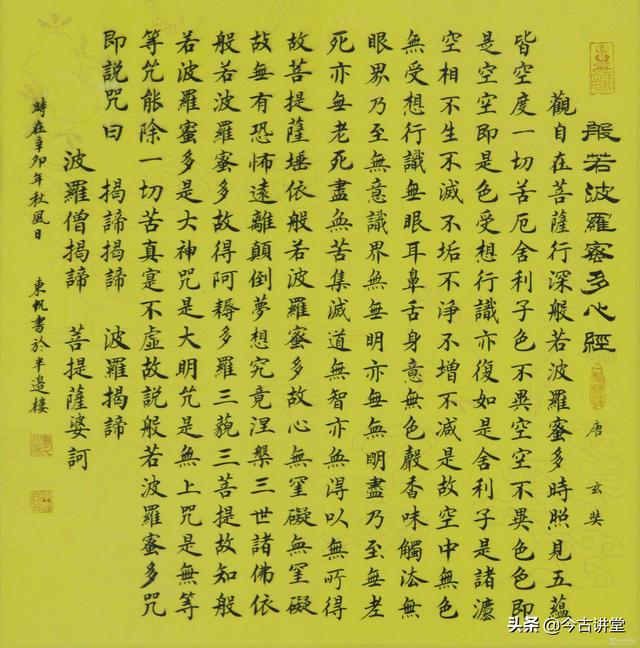 般若波羅蜜多心經 唐 玄奘
觀自在菩薩行深般若波羅蜜多時照見五蘊
皆空度一切苦厄舍利子色不異空空不異色色即
是空空即是色受想行識亦復如是舍利子是諸灋
空相不生不滅不垢不淨不增不減是故空中無色
無受想行識無眼耳鼻舌身意無色聲香味觸法無
眼界乃至無意識界無無明亦無無明盡乃至無老
死亦無老死盡無苦集滅道無智亦無得以無所得
故菩提薩埵依般若波羅蜜多故心無罣礙無罣礙
故無有恐怖遠離顛倒夢想究竟涅槃三世諸佛依
般若波羅蜜多故得阿耨多羅三藐三菩提故知般
若波羅蜜多是大神咒是大明咒是無上咒是無等
等咒能除一切苦真實不虛故說般若波羅蜜多咒
即說咒曰 揭諦揭諦 波羅揭諦
波羅僧揭諦 菩提薩婆訶
時在辛卯年秋風日 東帆書於半邊樓
头条 @今古讲堂